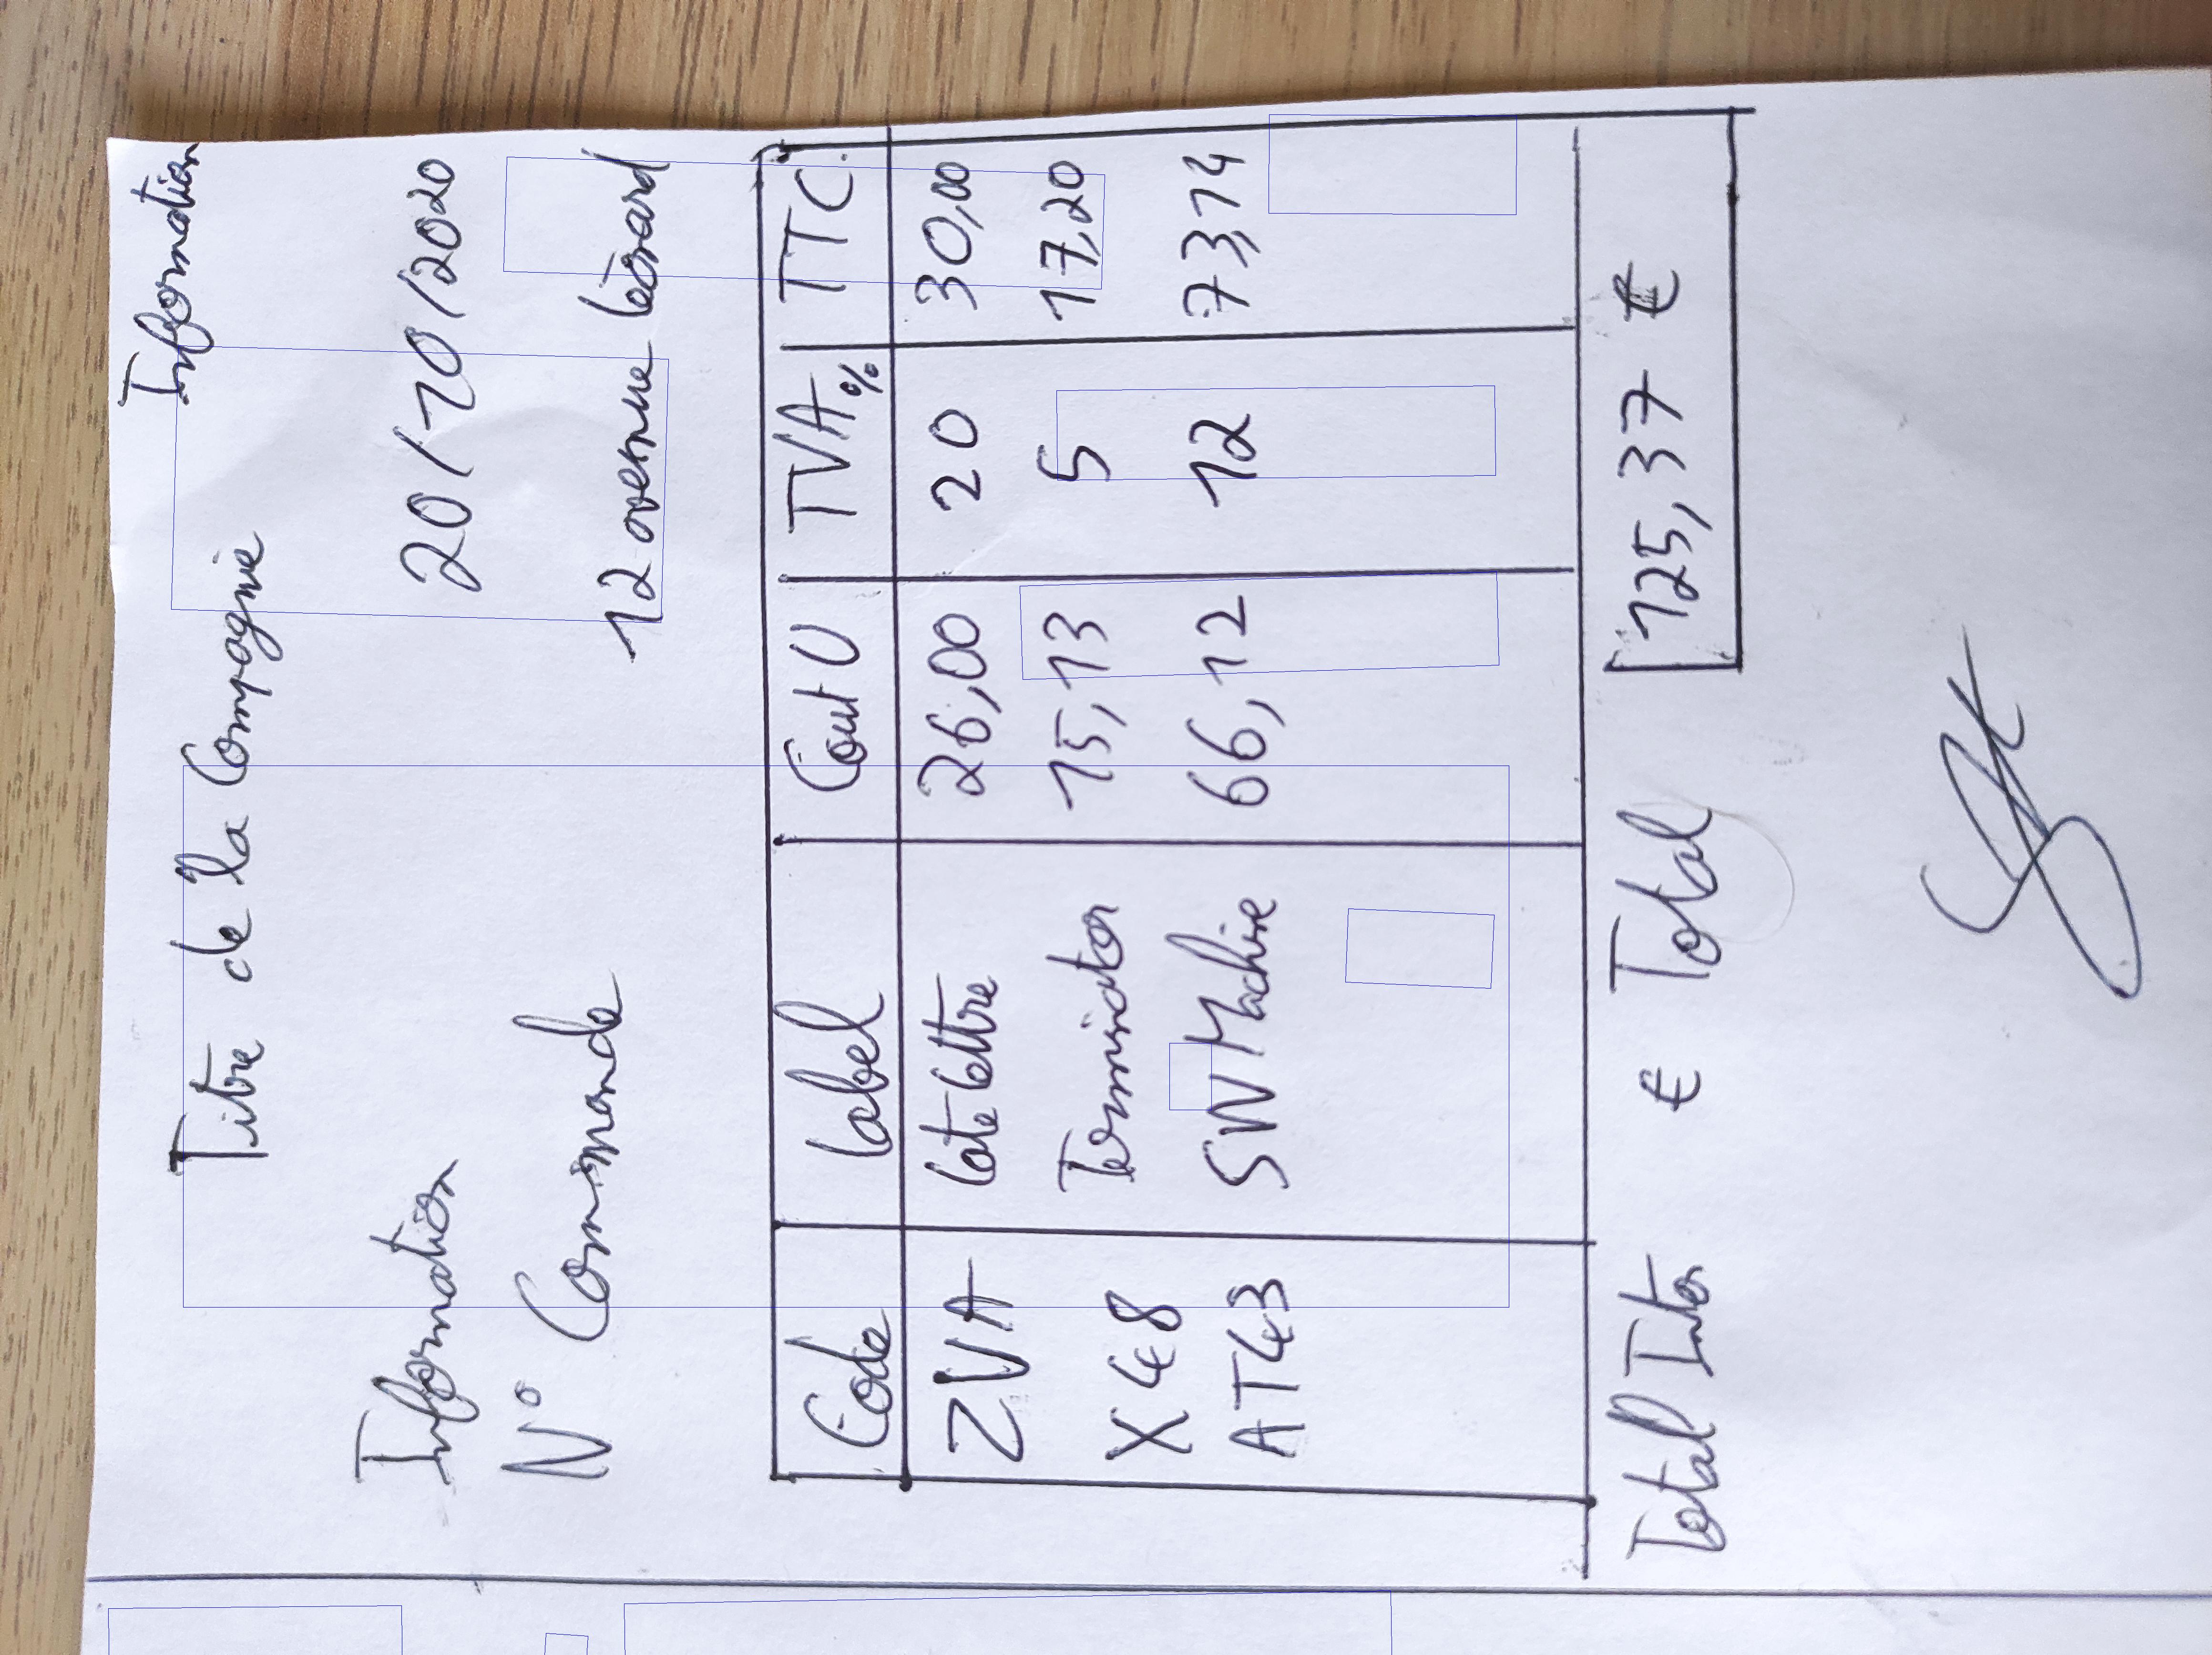 Information
Titre de la Compagnie
Information
20/10/2020
N° Commande
12 avenue Léonard
Code Label Cout U TVA% TTC
ZVA Late Lettre 26,00 20 30,00
X48 Terminator 15,13 5 17,20
AT43 SW Machine 66,12 12 73,14
Total Inter € Total 125,37 €